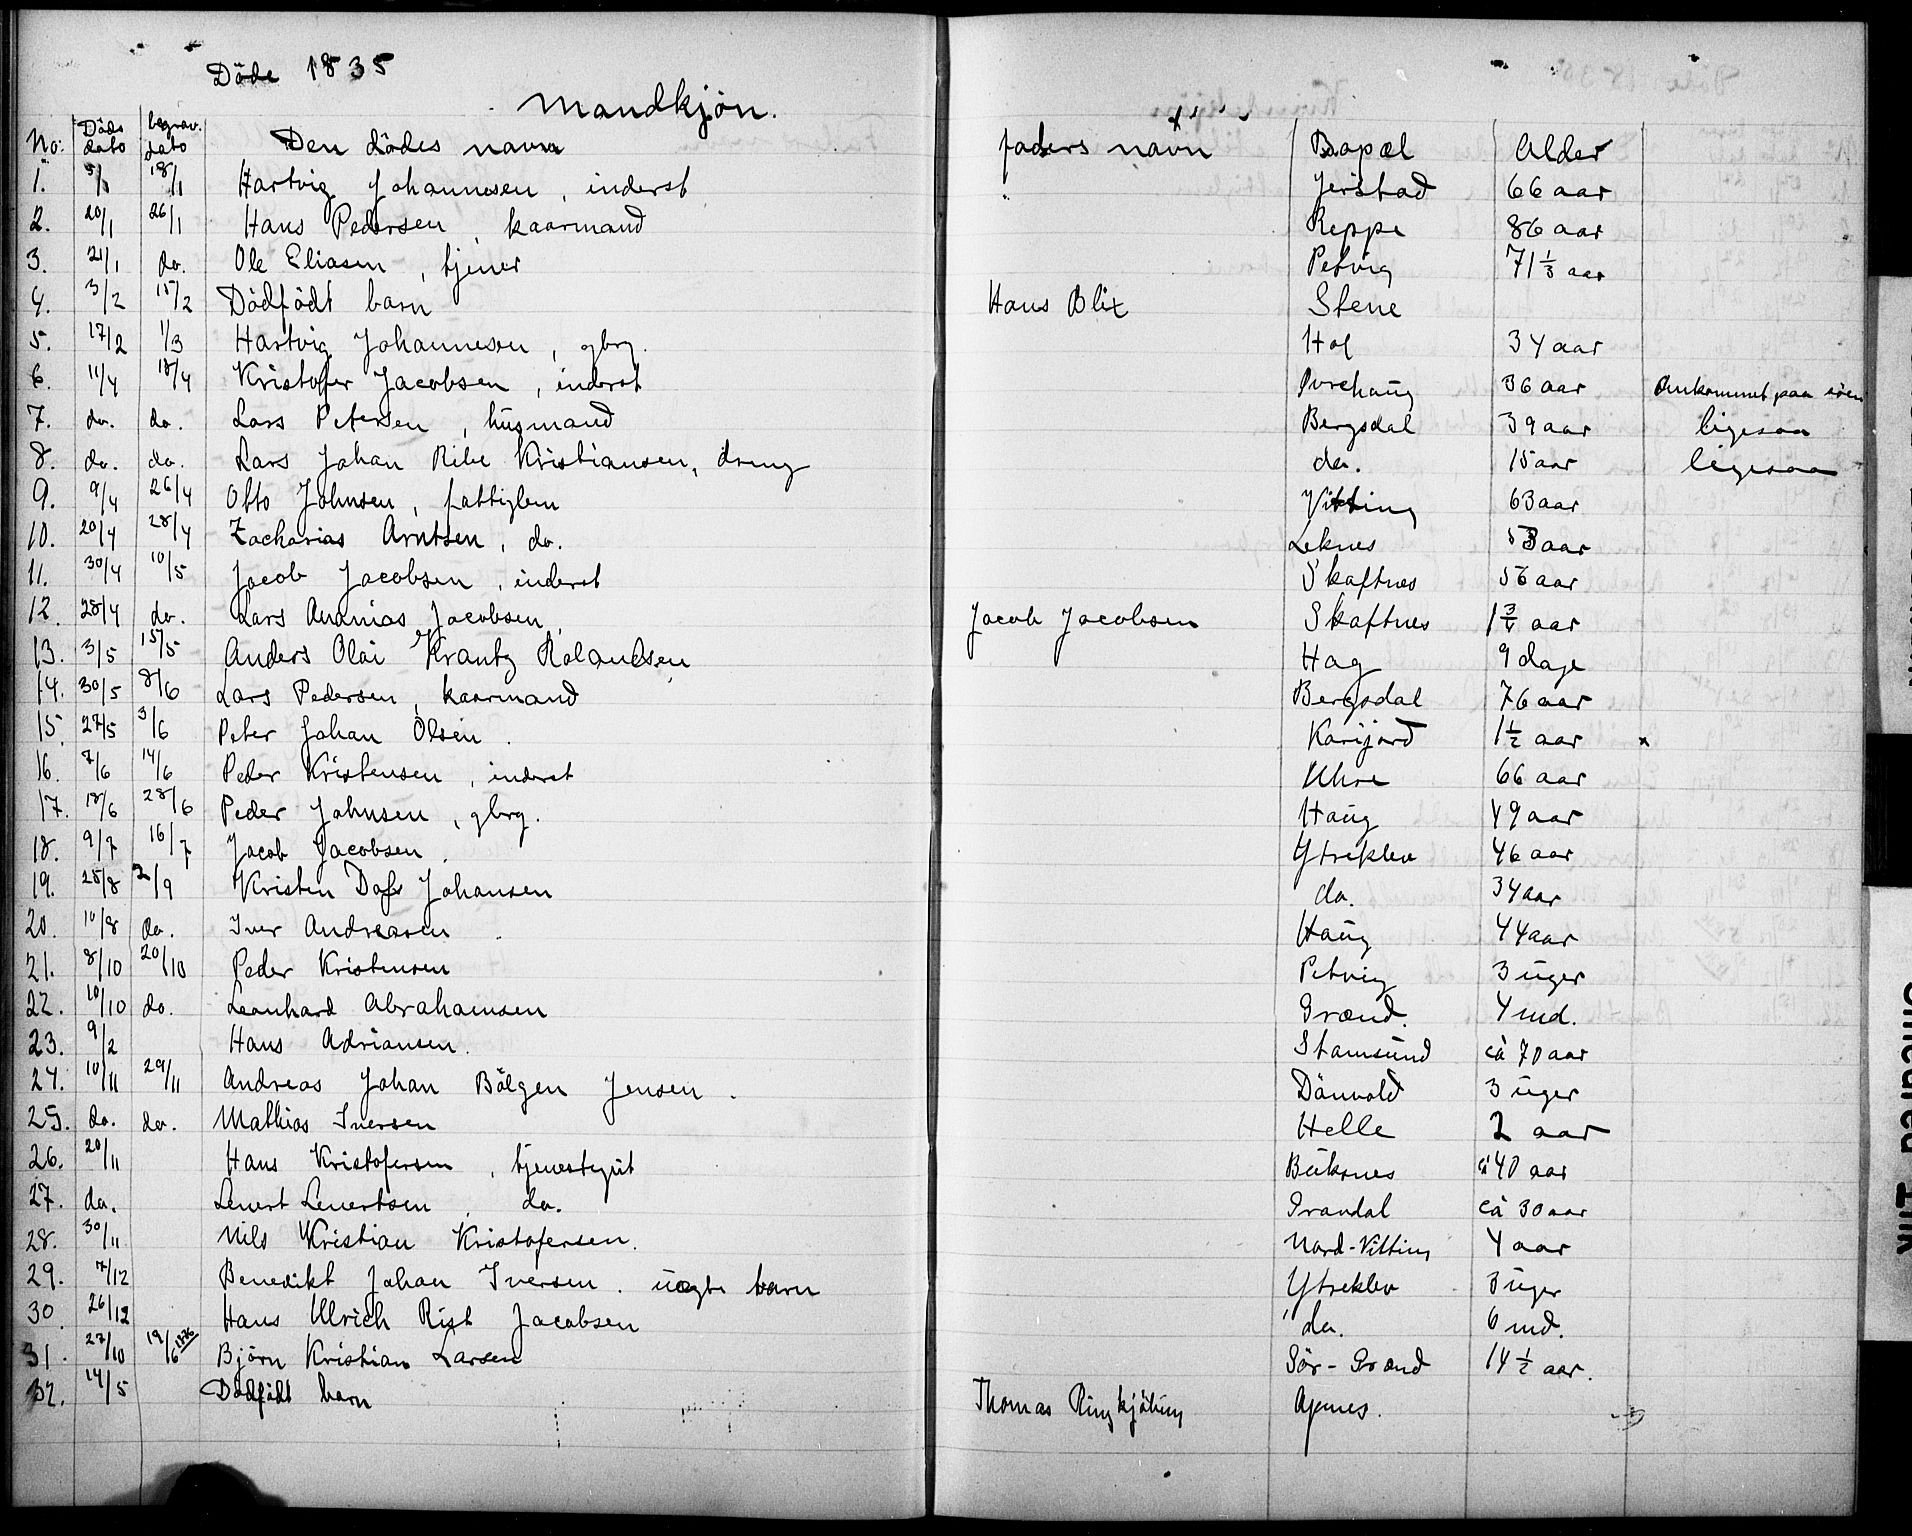 Døde 1835
Mandkjön.
No: Döds dato begrav. dato Den dödes navn faders navn Bopæl Alder
1. 5/1 18/1 Hartvig Johannesen, inderst Jerstad 66 aar
2. 20/1 26/1 Hans Pedersen, kaarmand Reppe 86 aar
3. 21/1 do. Ole Eliasen, tjener Petvig 71 1/3 aar
4. 3/2 15/2 Dödfödt barn Hans Blix Stene
5. 17/2 1/3 Hartvig Johannesen, gbrg. Hol 34 aar
6. 11/4 18/4 Kristofer Jacobsen, inderst Purehaug 36 aar Omkommet paa söen
7. do. do. Lars Petersen, husmand Bergsdal 39 aar ligesaa
8. do. do. Lars Johan Ribe Kristiansen, dreng do. 15 aar ligesaa
9. 9/4 26/4 Otto Johnsen, fattiglem Vitting 63 aar
10. 20/4 28/4 Zacharias Arntsen, do. Leknes 53 aar
11. 30/4 10/5 Jacob Jacobsen, inderst Skaftnes 56 aar
12. 28/4 do. Lars Ananias Jacobsen, Jacob Jacobsen Skaftnes 1 3/4 aar
13. 3/5 15/5 Anders Olai Krantz Rolandsen Hag 9 dage
14. 30/5 8/6 Lars Pedersen, kaarmand Bergsdal 76 aar
15. 27/5 3/6 Peter Johan Olsen. Karijord 1 1/2 aar x
16. 7/6 14/6 Peder Kristensen, inderst Uhre 66 aar
17. 18/6 28/6 Peder Johnsen, gbrg. Haug 49 aar
18. 9/7 16/7 Jacob Jacobsen. Ytreklev 46 aar
19. 25/8 2/9 Kristen Dass Johansen do. 34 aar
20. 10/8 do. Iver Andreasen. Haug 44 aar
21. 8/10 20/10 Peder Kristensen Petvig 3 uger
22. 10/10 do. Leonhard Abrahamsen Grænd. 4 md.
23. 9/2 Hans Adriansen. Stamsund ca 70 aar
24. 10/11 29/11 Andreas Johan Bölgen Jensen. Dönvold 3 uger
25. do. do. Mathias Iversen Helle 2 aar
26. 20/11 Hans Kristofersen, tjenestegut Buksnes ca 40 aar
27. do. Levert Levertsen, do. Grandal ca 30 aar
28. 30/11 Nils Kristian Kristofersen. Nord-Vitting 4 aar
29. 7/12 Benedikt Johan Iversen. uægte barn Ytreklev 3 uger
30. 26/12 Hans Ulrich Rist Jacobsen do. 6 md.
31. 27/10 19/6 1836 Björn Kristian Larsen Sör-Grænd 14 1/2 aar.
32. 14/5 Dödfödt barn Thomas Ringkjöbing Agnes.